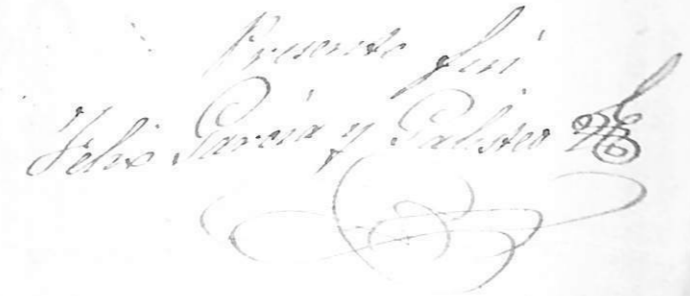 Presente fui
Felix Garcia y Galisteo